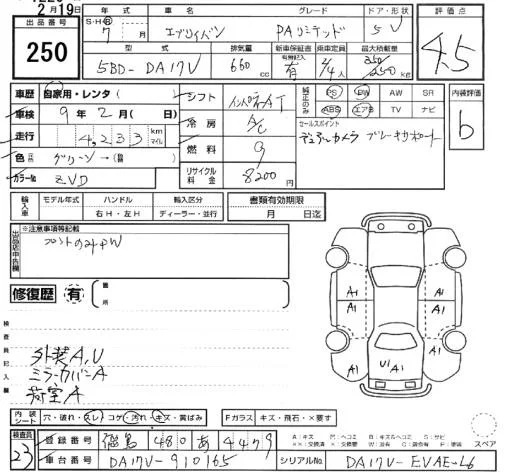 2月19日
出品番号 250
年式 S・H・R 7 月
車名 エブリィバン
グレード PAリミテッド
ドア・形状 5 V
評価点 4.5
型式 5BD-DA17V
排気量 660 cc
新車保証書 有記入 有
乗車定員 2/4人
最大積載量 350/250 kg
車歴 自家用・レンタ ( )
車検 9年2月( 日)
走行 4,233 km マイル
色 グリーン→( )
カラーNo ZVD
シフト インパネAT
冷房 A/C
燃料 G
リサイクル料金 8200円
純正のみ PS PW AW SR
ABS エアB TV ナビ
セールスポイント
デュアルカメラ ブレーキサポート
内装評価 b
輸入車 モデル年式 ハンドル 右H・左H 輸入区分 ディーラー・並行
書類有効期限 月 日迄
出品店申告欄 ※注意事項等記載
フロントのみPW
修復歴 有 ( 箇所
検査員記入欄
外装A,U
ミラーカバーA
荷室A
A1 A1
A1 A1
U1 A1
内装シート 穴・破れ・スレ コゲ・汚れ・キズ・黄ばみ
Fガラス キズ・飛石・×要す
スペア
検査員 23
登録番号 福島 480 あ 4479
車台番号 DA17V-910165
シリアルNo. DA17V-EVAE-L6